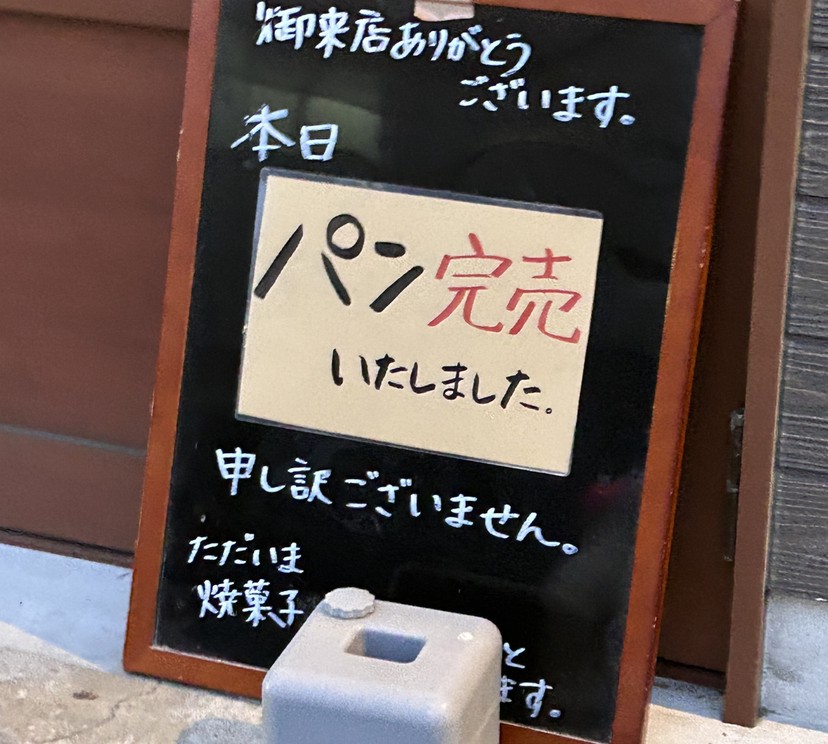 御来店ありがとう
ございます。
本日
パン完売
いたしました。
申し訳ございません。
ただいま
焼菓子
と
ます。